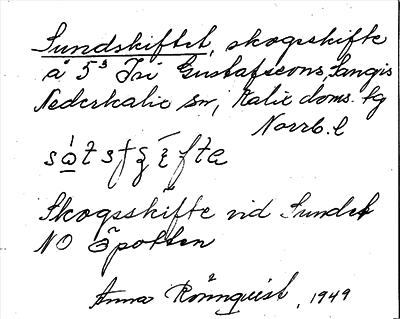 Sundskiftet, skogsskifte
å 5³ Iri Gustafssons, Sangis
Nederkalix sn, Kalix doms. tg
Norrb. l
Skogsskifte vid Sundet
NO
Anna Rönnquist, 1949